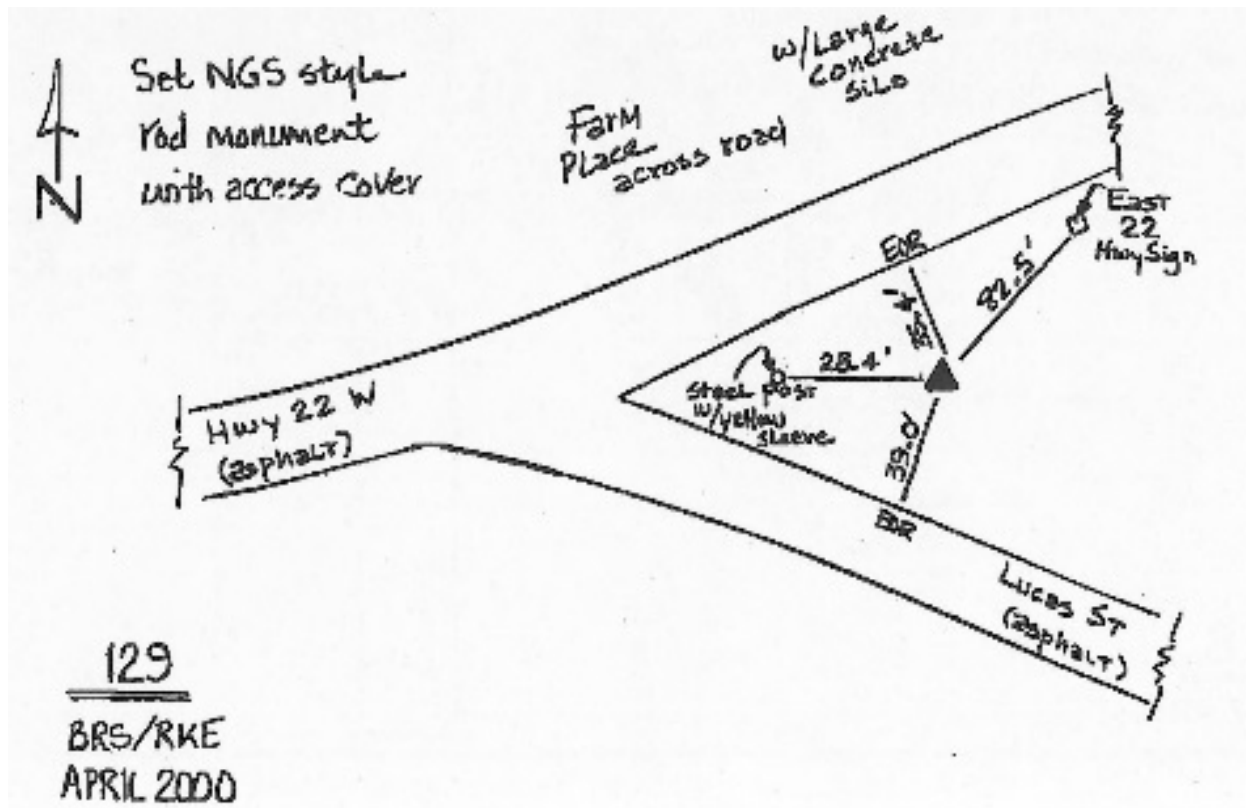 Set NGS style
rod monument
with access cover
N
Farm
Place
across road
w/Large
Concrete
silo
East
22
Hwy Sign
EOR
82.5'
35.4'
28.4'
Steel post
w/yellow
sleeve
39.0'
EOR
Hwy 22 W
(asphalt)
Lucas St
(asphalt)
129
BRS/RKE
APRIL 2000